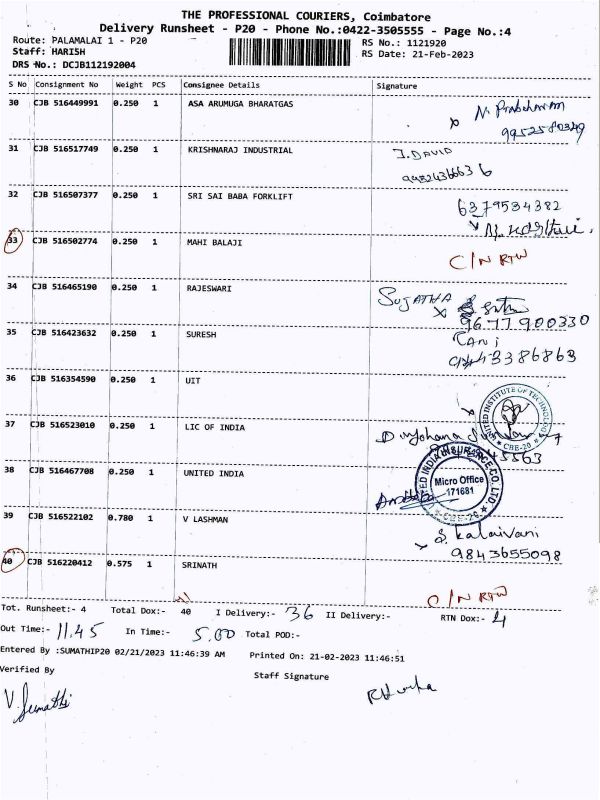 THE PROFESSIONAL COURIERS, Coimbatore
Delivery Runsheet - P20 - Phone No.:0422-3505555 - Page No.:4
Route: PALAMALAI 1 - P20
Staff: HARISH
DRS No.: DCJB112192004
RS No.: 1121920
RS Date: 21-Feb-2023
S No Consignment No Weight PCS Consignee Details Signature
30 CJB 516449991 0.250 1 ASA ARUMUGA BHARATGAS
N. Prabakaran
9952580349
31 CJB 516517749 0.250 1 KRISHNARAJ INDUSTRIAL J. DAVID
32 CJB 516507377 0.250 1 SRI SAI BABA FORKLIFT
6379534382
33 CJB 516502774 0.250 1 MAHI BALAJI
C/N RTN
34 CJB 516465190 0.250 1 RAJESWARI SUJATHA
9677900330
35 CJB 516423632 0.250 1 SURESH RANI
36 CJB 516354590 0.250 1 UIT
UNITED INSTITUTE OF TECHNOLOGY
CBE-20
37 CJB 516523010 0.250 1 LIC OF INDIA
38 CJB 516467708 0.250 1 UNITED INDIA
UNITED INDIA INSURANCE CO. LTD.
Micro Office
171681
CBE-20
39 CJB 516522102 0.780 1 V LASHMAN
S. Kalaivani
9843655098
40 CJB 516220412 0.575 1 SRINATH
C/N RTN
Tot. Runsheet:- 4 Total Dox:- 40 I Delivery:- 36 II Delivery:- RTN Dox:- 4
Out Time:- 11.45 In Time:- 5.00 Total POD:-
Entered By :SUMATHIP20 02/21/2023 11:46:39 AM Printed On: 21-02-2023 11:46:51
Verified By Staff Signature
V. Sumathi